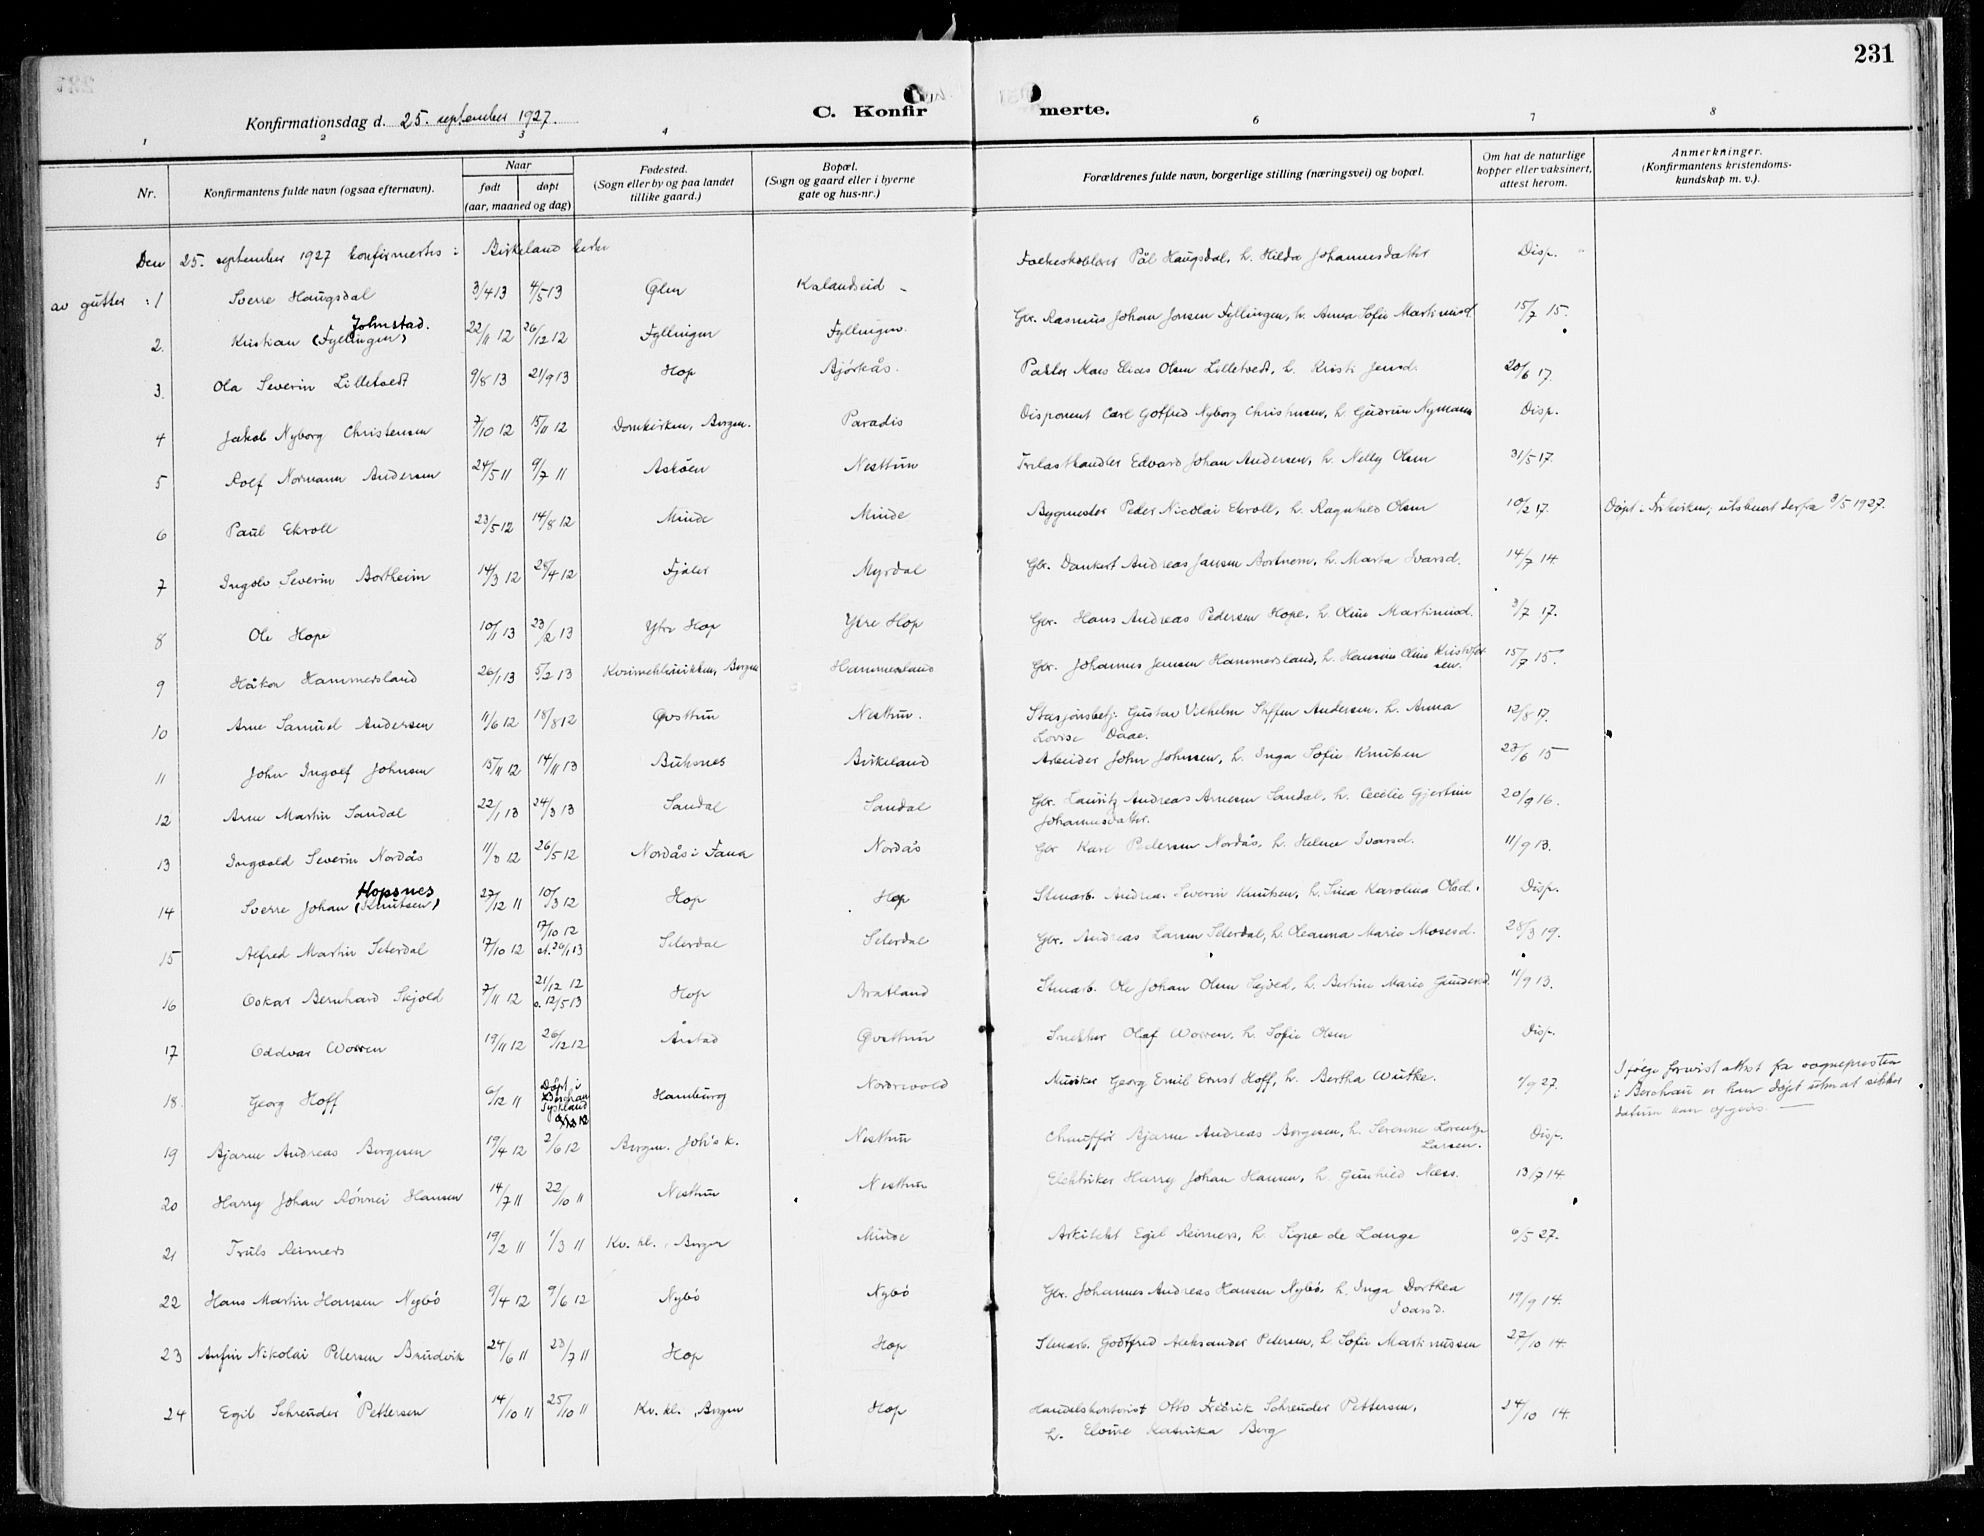 231
Konfirmationsdag d. 25. september 1927.
C. Konfirmerte.
1 2 3 4 6 7 8
Nr.
Konfirmantens fulde navn (ogsaa efternavn).
Naar
født døpt
(aar, maaned og dag)
Fødested.
(Sogn eller by og paa landet
tillike gaard.)
Bopæl.
(Sogn og gaard eller i byerne
gate og hus-nr.)
Forældrenes fulde navn, borgerlige stilling (næringsvei) og bopæl.
Om hat de naturlige
kopper eller vaksinert,
attest herom.
Anmerkninger.
(Konfirmantens kristendoms-
kundskap m. v.).
Den 25. september 1927 konfirmertes i Birkeland kirke
av gutter : 1 Sverre Haugsdal 3/4 13 4/5 13 Ølen Kalandseid Folkeskolelærer Pål Haugsdal, h. Hilda Johannesdatter Disp.
Johnstad.
2. Kristian (Fyllingen) 22/11 12 26/12 12 Fyllingen Fyllingen. Gbr. Rasmus Johan Jonsen Fyllingen, h. Anna Sofie Martinusd. 15/7 15.
3. Ola Severin Lilletvedt 9/8 13 21/9 13 Hop Bjørkås. Mons Elias Olsen Lilletvedt, h. Kristi Jensd. 20/6 17.
4 Jakob Nyborg Christensen 7/10 12 15/11 12 Domkirken, Bergen. Paradis Disponent Carl Gotfred Nyborg Christensen, h. Gudrun Nymann Disp.
5 Rolf Normann Andersen 24/5 11 9/7 11 Askøen Nesttun Trelasthandler Edvard Johan Andersen, h. Nelly Olsen 31/5 17.
6 Paul Ekroll 23/5 12 14/8 12 Minde Minde Bygmester Peder Nicolai Ekroll, h. Ragnhild Olsen 10/2 17. Døpt i Frikirken, utskrevet derfra 9/5 1927.
7 Ingolv Severin Bortheim 14/3 12 28/4 12 Fjaler Myrdal Gbr. Dankert Andreas Jansen Bortnem, h. Marta Ivarsd. 14/7 14.
8 Ole Hope 10/1 13 23/2 13 Ytre Hop Ytre Hop Gbr. Hans Andreas Pedersen Hope, h. Oline Martinusd. 3/7 17.
9 Håkon Hammersland 26/1 13 5/2 13 Kvinneklinikken, Bergen Hammersland Gbr. Johannes Jensen Hammersland, h. Hansine Oline Kristofer-
sen. 15/7 15.
10 Arne Samuel Andersen 11/6 12 18/8 12 Øvsttun Nesttun. Stasjonsbetj. Gustav Vilhelm Steffen Andersen, h. Anna
Lovise Daae. 12/8 17.
11 John Ingolf Johnsen 15/11 12 14/11 13 Buksnes Birkeland Arbeider John Johnsen, h. Inga Sofie Knutsen 23/6 15
12 Arne Martin Sandal 22/1 13 24/3 13 Sandal Sandal Gbr. Lauritz Andreas Arnesen Sandal, h. Cecilie Gjertine
Johannesdatter. 20/9 16.
13 Ingvald Severin Nordås 11/3 12 26/5 12 Nordås i Fana Nordås Gbr Karl Pedersen Nordås, h. Helene Ivarsd. 11/9 13.
Hopsnes
14 Sverre Johan (Knutsen) 27/12 11 10/3 12 Hop Hop Stenarb. Andreas Severin Knutsen, h. Sina Karolina Olsd. Disp.
15 Alfred Martin Seterdal 17/10 12 17/10 12
st. 26/1 13 Seterdal Seterdal Gbr. Andreas Larsen Seterdal, h. Oleanna Marie Mosesd. 28/3 19.
16 Oskar Bernhard Skjold 7/11 12 21/12 12
s. 12/5 13 Hop Bratland Stenarb. Ole Johan Olsen Skjold, h. Bertine Marie Gundersd. 11/9 13.
17 Oddvar Worren 19/11 12 26/12 12 Årstad Øvsttun Snekker Olaf Worren, h. Sofie Olsen Disp.
18. Georg Hoff 6/12 11 Døpt i
Tyskland Hamburg Nordrevold Musiker Georg Emil Ernst Hoff, h. Bertha Wutke. 1/9 27. I følge attest fra sognepresten
i er han døpt uten at sikker
datum kan opgives.
19 Bjarne Andreas Borgesen 19/4 12 2/6 12 Bergen. Joh's k. Nesttun Chauffør Bjarne Andreas Borgesen, h. Serenne Lorentze
Larsen. Disp.
20 Harry Johan Rönnei Hansen 14/7 11 22/10 11 Nesttun Nesttun Elektriker Harry Johan Hansen, h. Gunhild Næss. 13/7 14.
21 Truls Reimers 19/2 11 1/3 11 Kv. kl., Bergen Minde Arkitekt Egil Reimers, h. Signe de Lange 6/5 27.
22 Hans Martin Hansen Nybö 9/4 12 9/6 12 Nybö Nybö Gbr. Johannes Andreas Hansen Nybö, h. Inga Dorthea
Ivarsd. 19/9 14.
23 Anfin Nikolai Petersen Brudvik 24/6 11 23/7 11 Hop Hop Stenarb. Godtfred Aleksander Petersen, h. Sofie Martinussen 27/10 14.
24 Egil Schreuder Pettersen 14/10 11 25/10 11 Kv. kl., Bergen Hop Handelskontorist Otto Fredrik Schreuder Pettersen,
h. Elvine Katinka Berg 24/10 14.